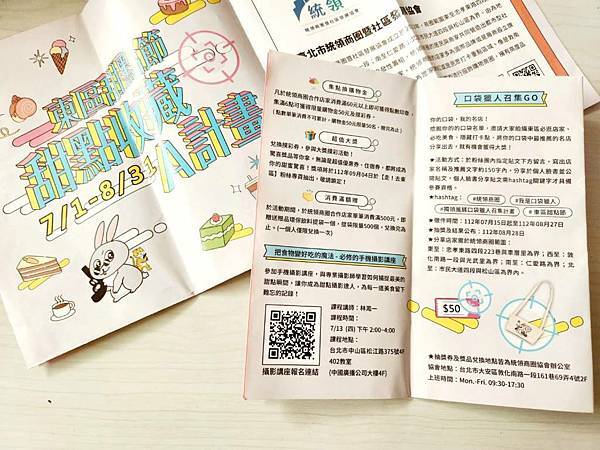 東區甜點節
甜點收藏
A計畫
7/1-8/31
統領
臺北市統領商圈暨社區發
集點換購物金
凡於統領商圈合作店家消費滿60元以上即可獲得點數印章，
集滿6點可獲得限量購物金50元及摸彩券。
(點數單筆消費不可累計，購物金50元限量50名，贈完為止)
超值大獎
兌換摸彩券，參與大獎摸彩活動！
驚喜獎品等你拿，無論是超值優惠券、住宿券，都將成為
你的甜蜜驚喜！獎項將於112年09月04日於【走！去東
區】粉絲專頁抽出，敬請鎖定！
消費滿額贈
於活動期間，於統領商圈合作店家單筆消費滿500元，即
贈送贈品環保飲料提袋一個，提袋限量500個，兌換完為
止。(一個人僅限兌換一次)
把食物變好吃的魔法 - 必修的手機攝影講座
參加手機攝影講座，與專業攝影師學習如何捕捉最美的
甜點瞬間，讓你成為甜點攝影達人，為每一道美食留下
難忘的記錄！
課程講師：林周一
課程時間：
7/13 (四) 下午 2:00-4:00
課程地點：
台北市中山區松江路375號4F
402教室
(中國廣播公司大樓4F)
攝影講座報名連結
口袋獵人召集GO
你的口袋，我的名店！
挖掘你的口袋名單，邀請大家拍攝東區必逛店家、
必吃美食、隱藏打卡點，將你的口袋中最推薦的名店
分享出去，就有機會獲得大獎！
活動方式：於粉絲團內指定貼文下方留言，寫出店
家名稱及推薦文字約150字內，分享於個人臉書並公
開貼文，個人臉書分享貼文需hashtag關鍵字才具備
參賽資格。
★hashtag：
#統領商圈
#我是口袋獵人
#獨領風騷口袋獵人召集計畫
#東區甜點節
★徵件時間：112年07月15日起至112年08月27日
★抽獎及結果公布：112年08月28日
★分享店家需於統領商圈範圍：
東至：忠孝東路四段223巷與東豐里為界；西至：敦
化南路一段與光武里為界；南至：仁愛路為界；北
至：市民大道四段與松山區為界內。
$50
★抽獎券及獎品兌換地點皆為統領商圈協會辦公室
協會地點：台北市大安區敦化南路一段161巷69弄4號2F
上班時間：Mon.-Fri. 09:30-17:30